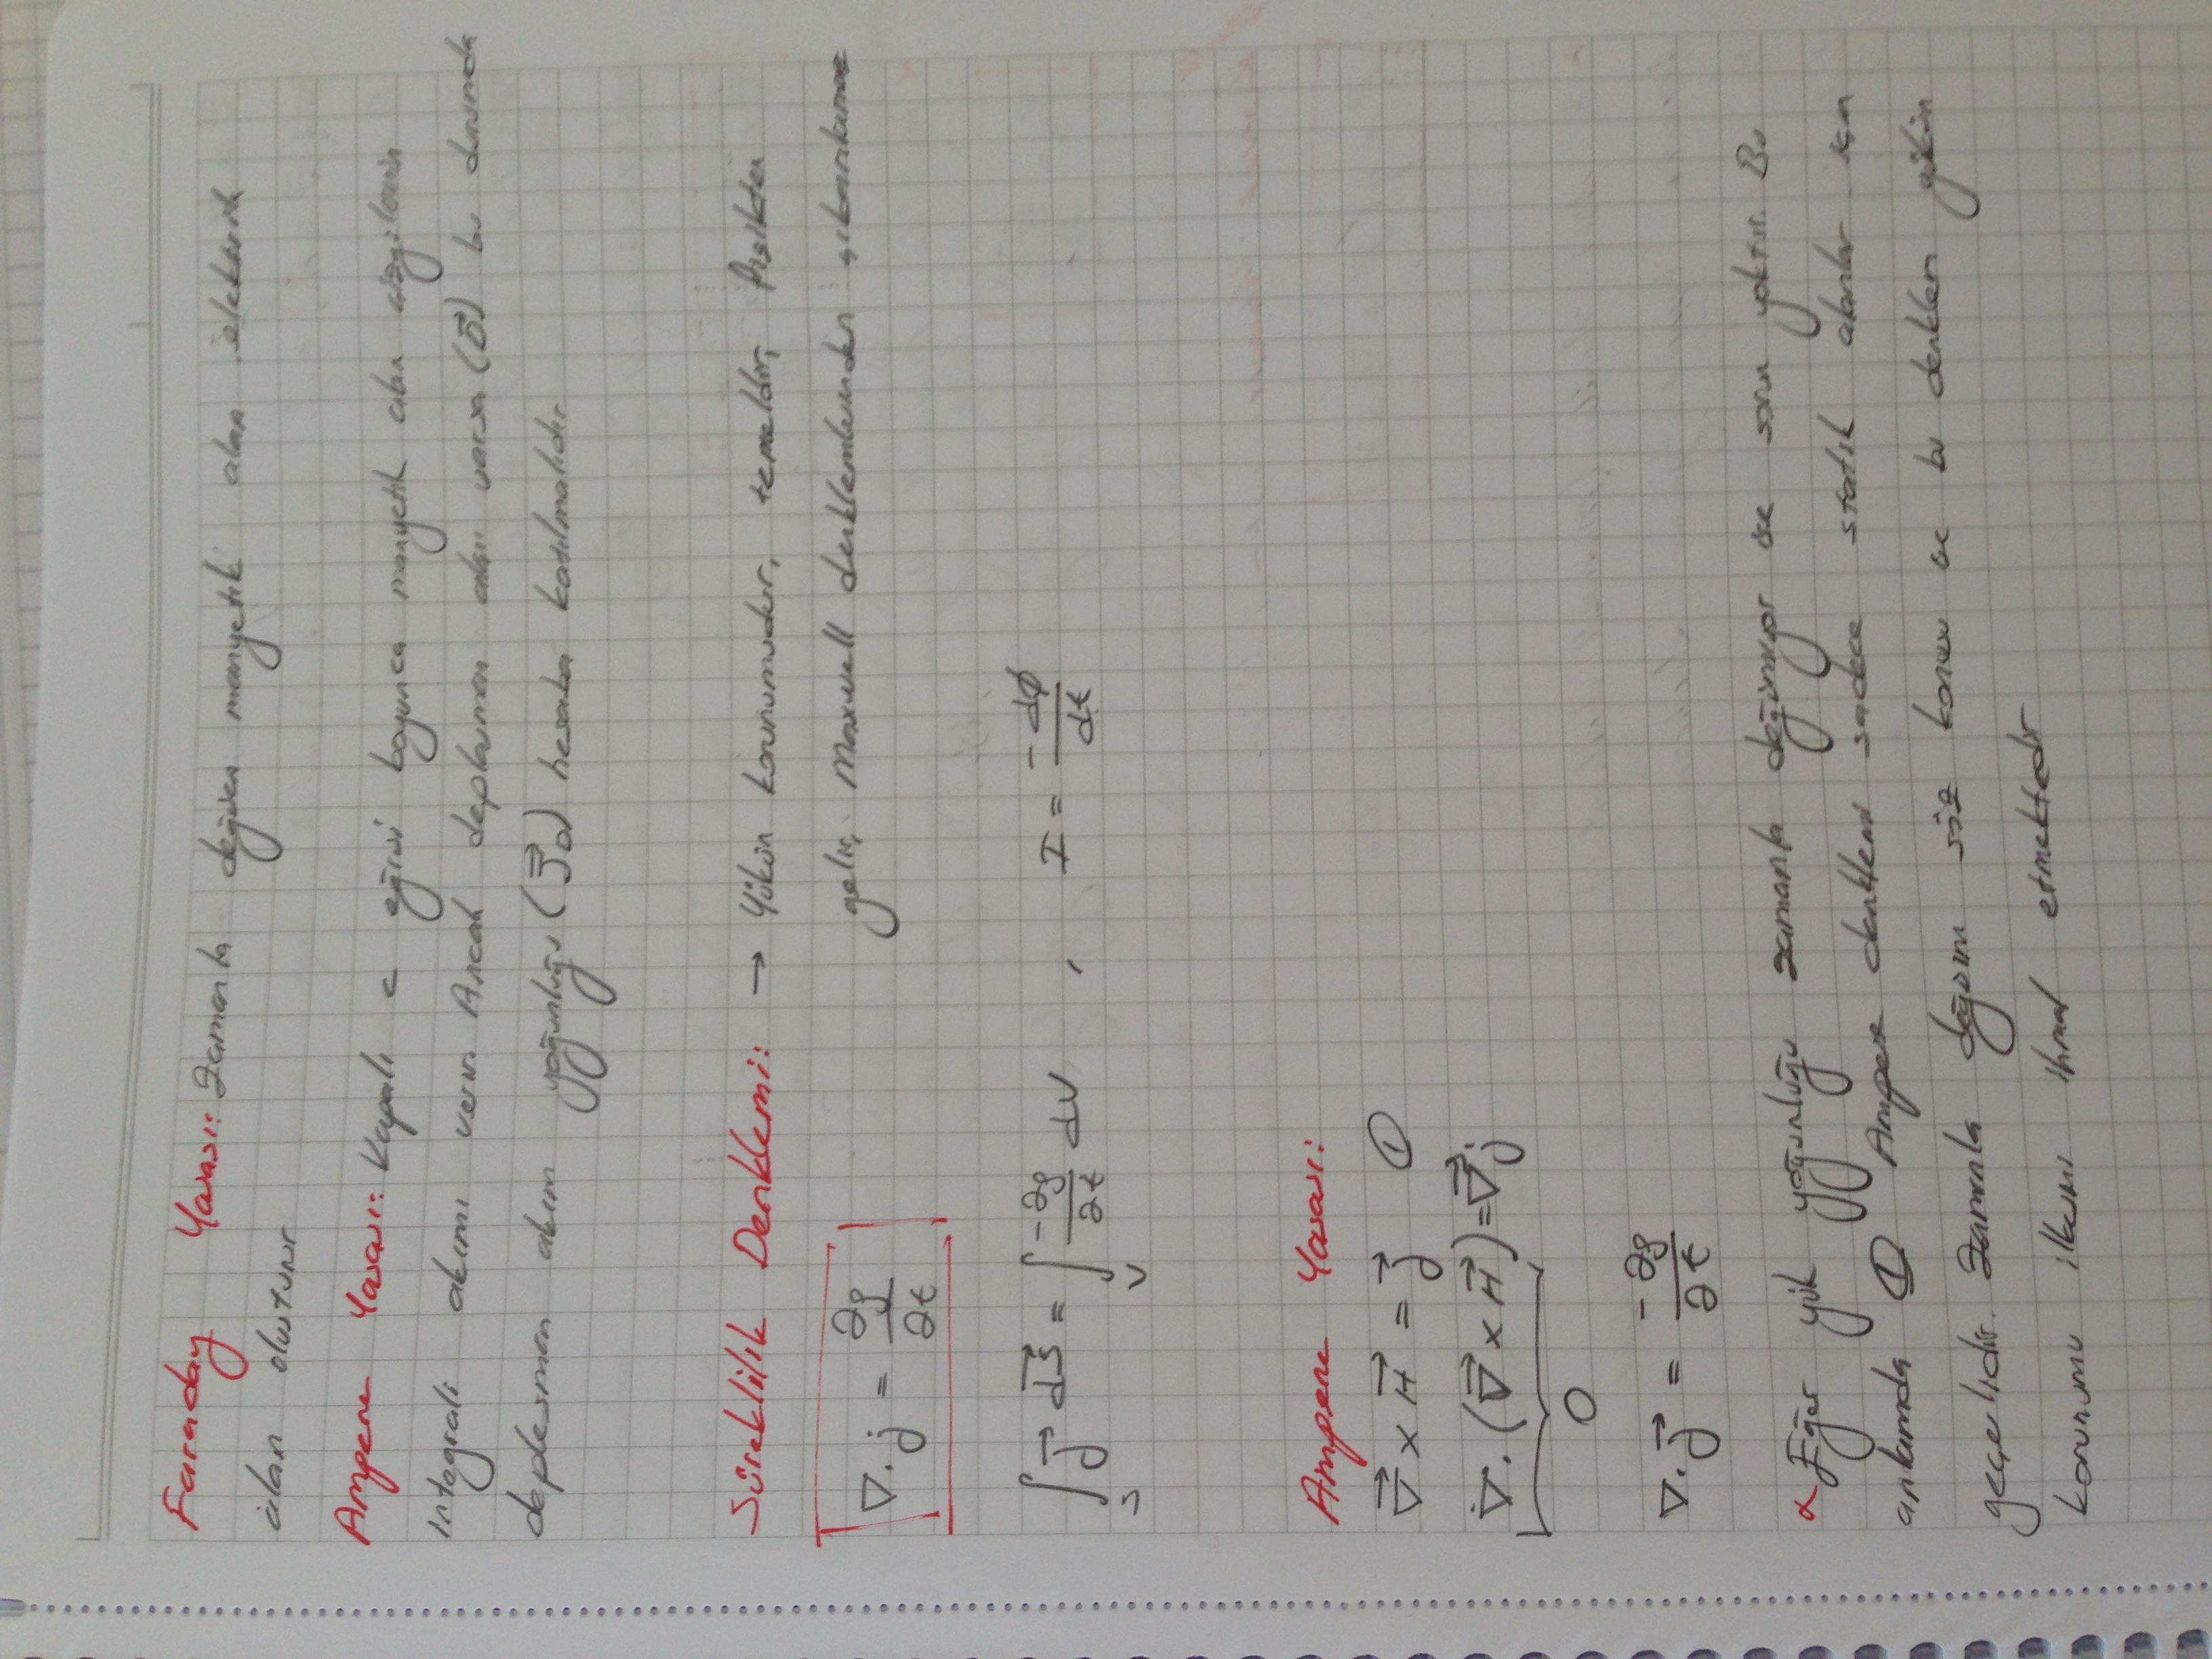 Faraday Yasası: Zamanla değişen manyetik alan elektrik
alan oluşturur
Ampere Yasası: Kapalı c eğrisi boyunca manyetik alan çizgilerinin
integrali akımı verir. Ancak deplasman alanı varsa (D⃗) bu durumda
deplesman akım yoğunluğu (J⃗D) hesaba katılmalıdır
Süreklilik Denklemi: → Yükün korunumudur, temeldir, fizikten
gelir, Maxwell denklemlerinden çıkarılamaz
∇. j = ∂ρ/∂t
∫S j⃗ dS⃗ = ∫V -∂ρ/∂t dV , I = -dϕ/dt
Ampere Yasası:
∇⃗ x H⃗ = j⃗ ①
∇. (∇⃗ x H⃗) = ∇⃗ j
0
∇. j⃗ = -∂ρ/∂t
α Eğer yük yoğunluğu zamanla değişmiyor ise sorun yoktur. Bu
anlamda ① Ampere denklemi sadece statik alanlar için
geçerlidir. Zamanla değişim söz konusu ise bu denklem yükün
korunumu ilkesini ihmal etmektedir